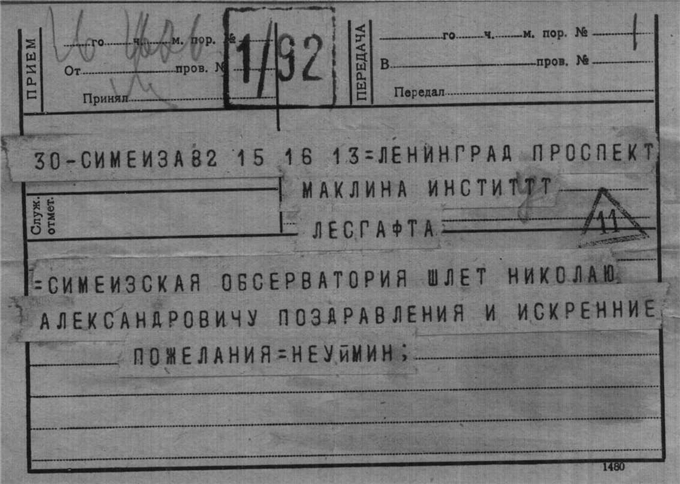 ПРИЕМ
го ч. м. пор. №
От пров. №
Принял
1/92
ПЕРЕДАЧА
го ч. м. пор. № 1
В пров. №
Передал
30-СИМЕИЗА 82 15 16 13=ЛЕНИНГРАД ПРОСПЕКТ
МАКЛИНА ИНСТИТТТ
ЛЕСГАФТА
Служ.
отмет.
11
=СИМЕИЗСКАЯ ОБСЕРВАТОРИЯ ШЛЕТ НИКОЛАЮ
АЛЕКСАНДРОВИЧУ ПОЗДРАВЛЕНИЯ И ИСКРЕННИЕ
ПОЖЕЛАНИЯ=НЕУЙМИН;
1480